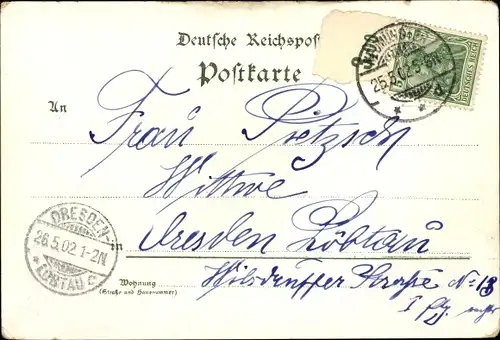 Deutsche Reichspost
Postkarte
25.5.02.5-6N
DEUTSCHES REICH
An
Frau Pietzsch
Wittwe
DRESDEN-
26.5.02.1-2N
* LÖBTAU c
in Dresden Löbtau
Wohnung
(Straße und Hausnummer)
Wilsdruffer Strasse No 13
I